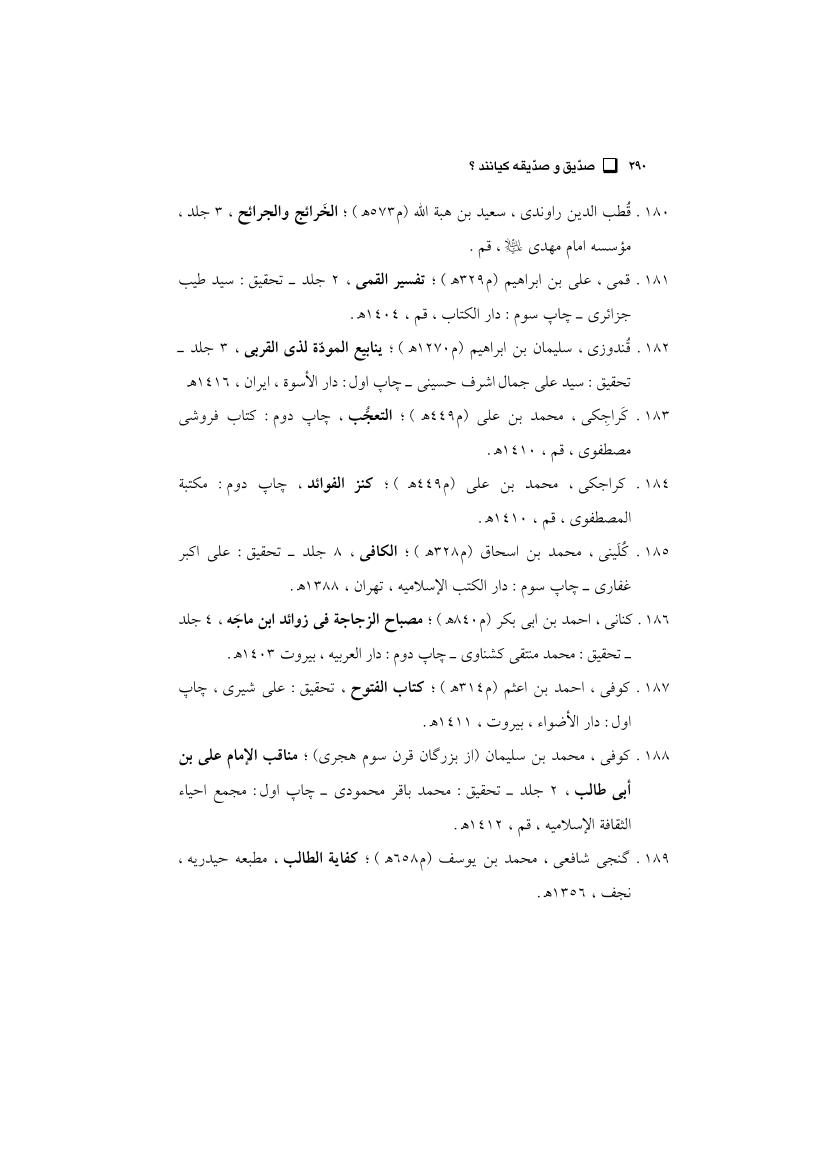 ۲۹۰ ❏ صدّیق و صدّیقه کیانند ؟
۱۸۰ . قُطب الدین راوندی ، سعید بن هبة الله (م۵۷۳ه‍ ) ؛ الخَرائج والجرائح ، ۳ جلد ،
مؤسسه امام مهدی ، قم .
۱۸۱ . قمی ، علی بن ابراهیم (م۳۲۹ه‍ ) ؛ تفسیر القمی ، ۲ جلد ـ تحقیق : سید طیب
جزائری ـ چاپ سوم : دار الکتاب ، قم ، ۱٤۰٤ه‍.
۱۸۲ . قُندوزی ، سلیمان بن ابراهیم (م۱۲۷۰ه‍ ) ؛ ینابیع المودّة لذی القربی ، ۳ جلد ـ
تحقیق : سید علی جمال اشرف حسینی ـ چاپ اول : دار الأسوة ، ایران ، ۱٤۱٦ه‍
۱۸۳ . کَراجِکی ، محمد بن علی (م٤٤۹ه‍ ) ؛ التعجُّب ، چاپ دوم : کتاب فروشی
مصطفوی ، قم ، ۱٤۱۰ه‍.
۱۸٤ . کراجکی ، محمد بن علی (م٤٤۹ه‍ ) ؛ کنز الفوائد ، چاپ دوم : مکتبة
المصطفوی ، قم ، ۱٤۱۰ه‍.
۱۸۵ . کُلَینی ، محمد بن اسحاق (م۳۲۸ه‍ ) ؛ الکافی ، ۸ جلد ـ تحقیق : علی اکبر
غفاری ـ چاپ سوم : دار الکتب الإسلامیه ، تهران ، ۱۳۸۸ه‍.
۱۸٦ . کنانی ، احمد بن ابی بکر (م۸٤۰ه‍) ؛ مصباح الزجاجة فی زوائد ابن ماجَه ، ٤ جلد
ـ تحقیق : محمد منتقی کشناوی ـ چاپ دوم : دار العربیه ، بیروت ۱٤۰۳ه‍.
۱۸۷ . کوفی ، احمد بن اعثم (م۳۱٤ه‍ ) ؛ کتاب الفتوح ، تحقیق : علی شیری ، چاپ
اول : دار الأضواء ، بیروت ، ۱٤۱۱ه‍.
۱۸۸ . کوفی ، محمد بن سلیمان (از بزرگان قرن سوم هجری) ؛ مناقب الإمام علی بن
أبی طالب ، ۲ جلد ـ تحقیق : محمد باقر محمودی ـ چاپ اول : مجمع احیاء
الثقافة الإسلامیه ، قم ، ۱٤۱۲ه‍.
۱۸۹ . گنجی شافعی ، محمد بن یوسف (م٦۵۸ه‍ ) ؛ کفایة الطالب ، مطبعه حیدریه ،
نجف ، ۱۳۵٦ه‍.